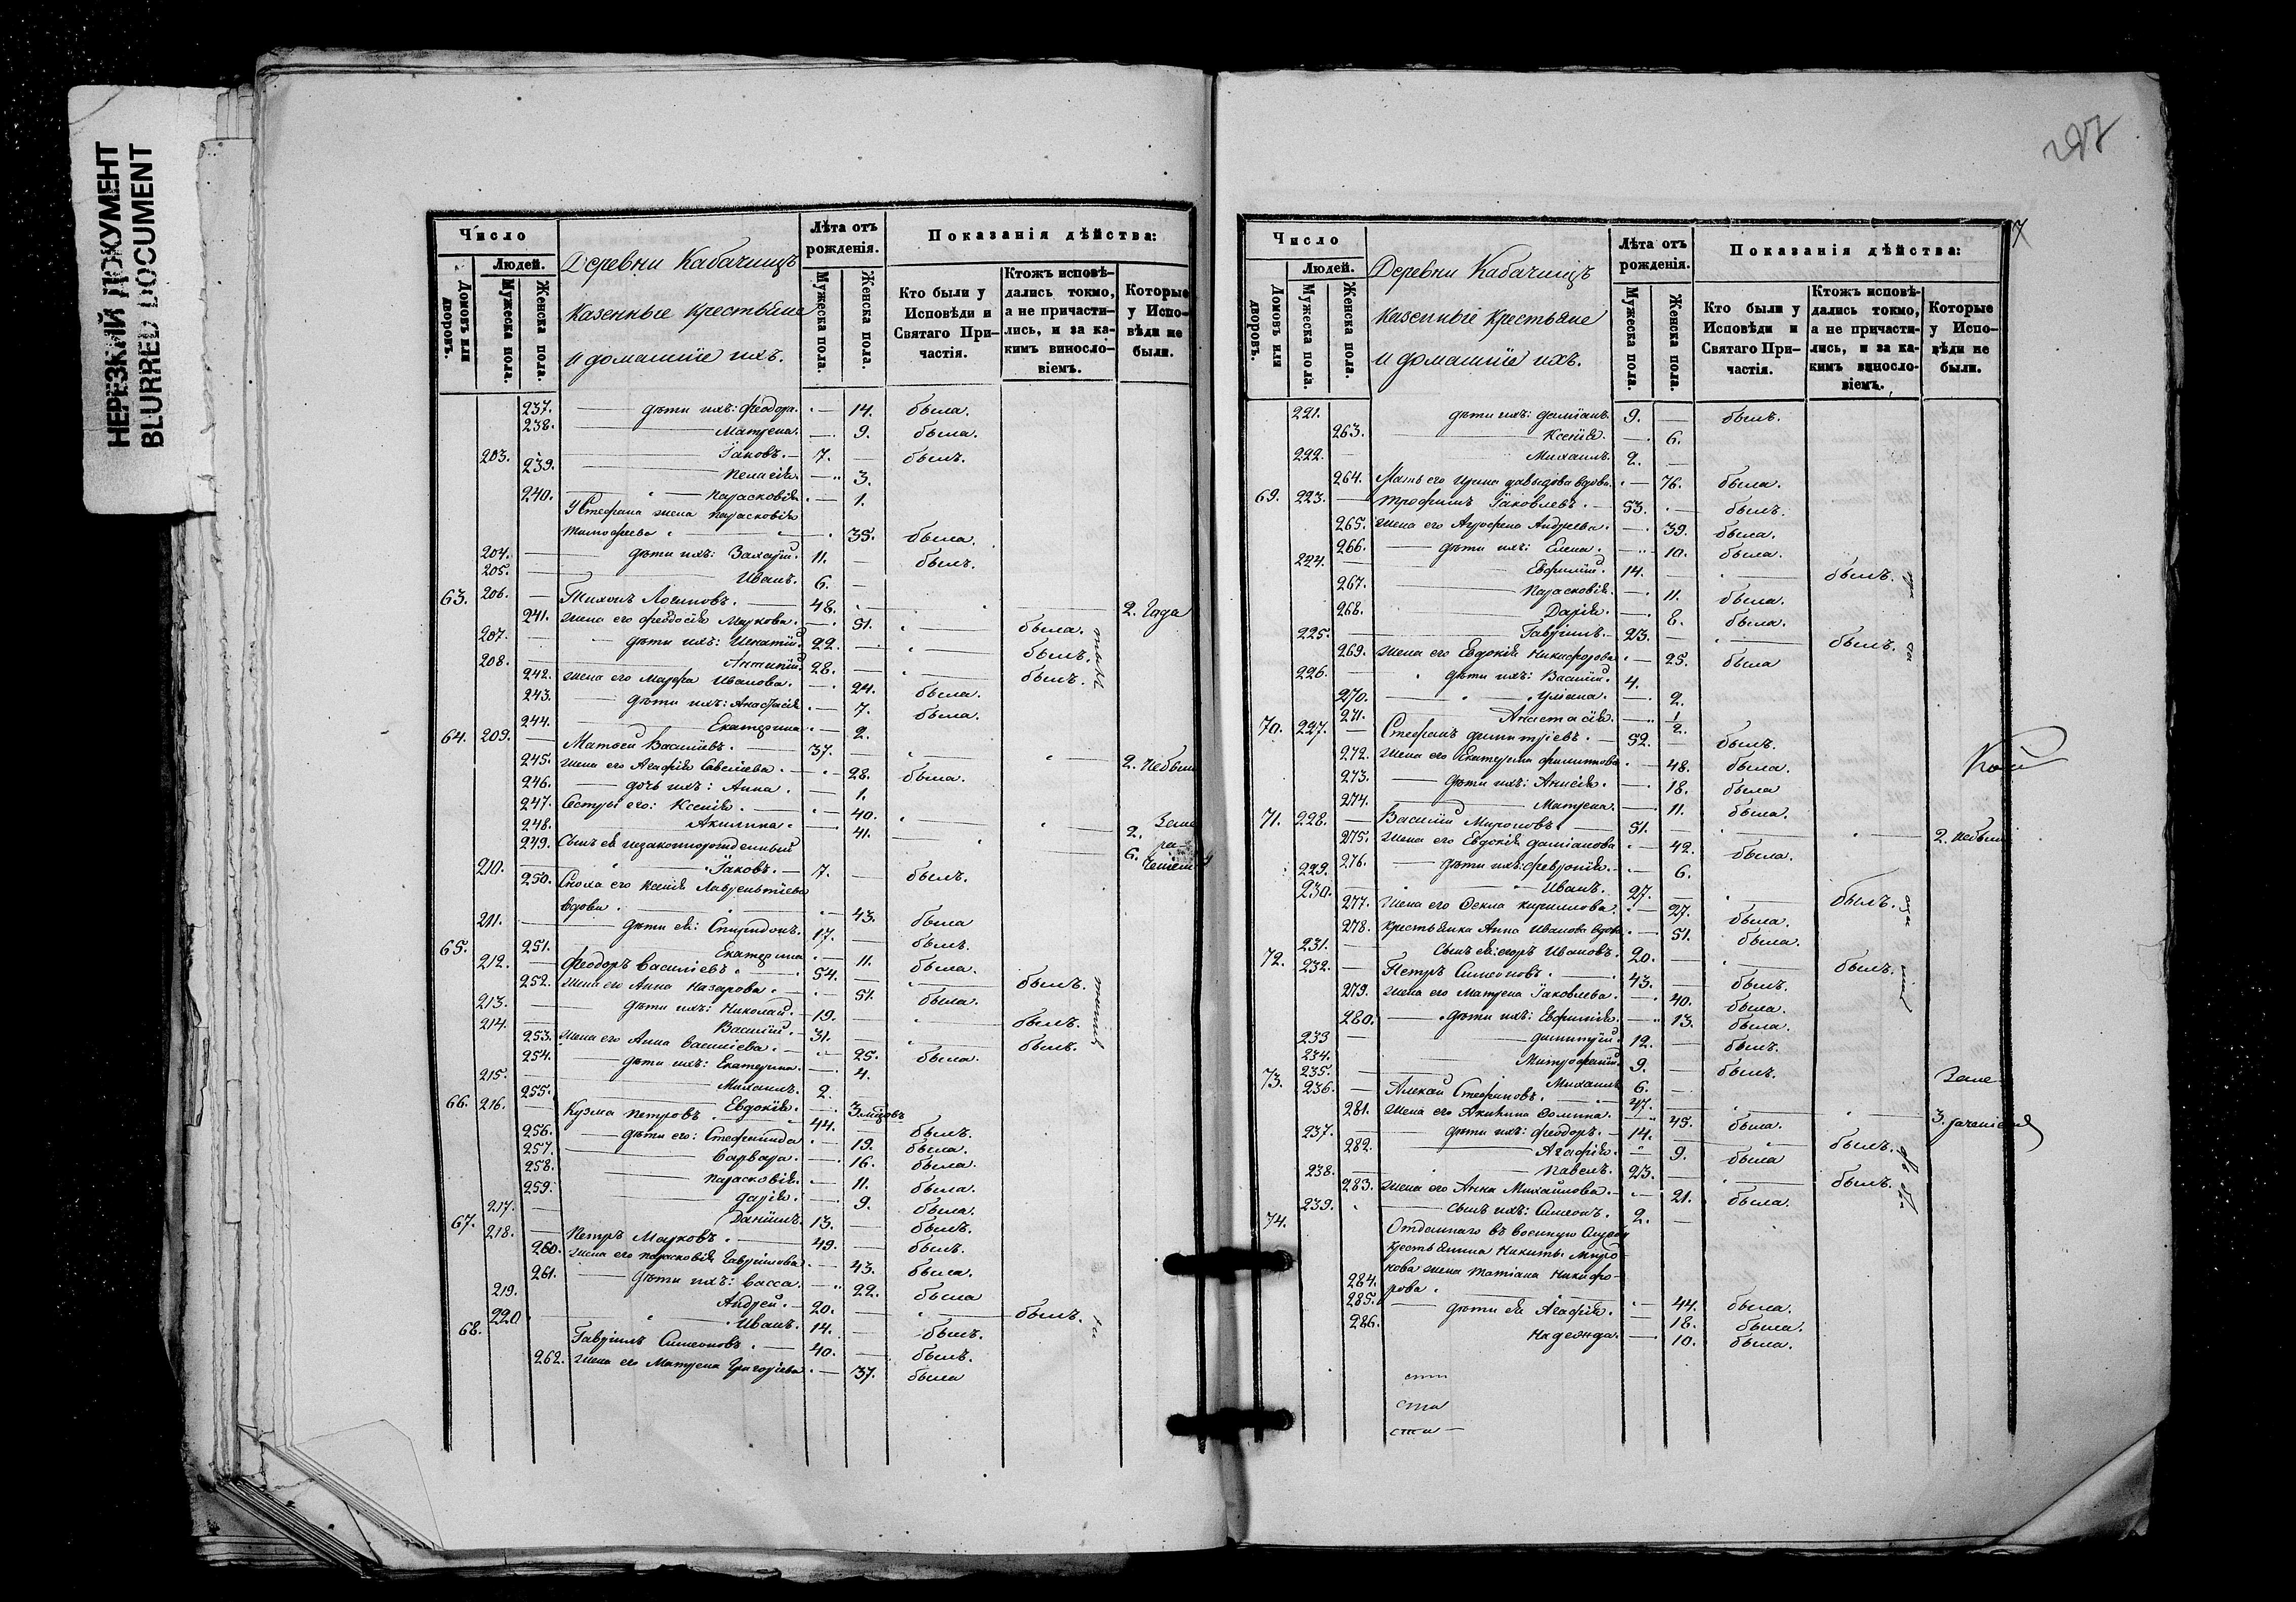 НЕРЕЗКИЙ ДОКУМЕНТ
BLURRED DOCUMENT
Число
Людей.
Домовъ или дворовъ.
Мужеска пола.
Женска пола.
Деревни Кабачищъ
Казенные Крестьяне
и домашніе ихъ.
Лѣта отъ рожденія.
Мужеска пола.
Женска пола.
Показанія дѣйства:
Кто были у Исповѣди и Святаго При-частія.
Ктожъ исповѣ-дались токмо, а не причасти-лись, и за ка-кимъ винosло-віемъ.
Которые у Испо-вѣди не были.
237. дѣти ихъ: Феодора. — 14. была.
238. Матрена. — 9. была.
203. Іаковъ. — 7. — былъ.
239. Пелагія. — 3.
240. Парасковія. — 1.
У Стефана жена Парасковія
Тимофеева — 35. была.
204. — дѣти ихъ: Захарій. 11. — былъ.
205. — Иванъ. 6. —
63. 206. — Тихонъ Логиновъ. — 48. — 2. Года
241. жена его Феодосія Маркова. — 51. — была.
207. — дѣти ихъ: Игнатій. 22. — былъ.
208. — Антипій. 28. — былъ.
242. жена его Марфа Иванова. — 24. была.
243. дѣти ихъ: Анастасія. — 7. была.
244. Екатерина — 2.
64. 209. — Матвей Василіевъ. — 37. — 2. не былъ
245. жена его Агафія Савелиева. — 28. была.
246. — дочь ихъ: Анна. — 1.
247. Сестры его: Ксенія. — 40. — 2.
248. Акилина. — 41. — 6.
249. Сынъ ея незаконнорожденный
210. Іаковъ. — 7. — былъ.
250. Сноха его Ксенія Лаврентіева
вдова. — 43. была
211. — дѣти ея: Спиридонъ. 17. — былъ.
251. Екатерина — 11. была.
65. 212. — Феодоръ Василіевъ. — 54. — былъ.
252. жена его Анна Назарова. — 51. была.
213. — дѣти ихъ: Николай. — 19. — былъ.
214. — Василій. — 31. — былъ.
253. жена его Анна Василіева. — 25. была.
254. — дѣти ихъ: Екатерина. — 4.
215. — Михаилъ. 2.
255. Евдокія. — 3 мѣсѣцъ
66. 216. — Кузма Петровъ. — 44. былъ.
256. — дѣти его: Стефанида — 19. была.
257. Варвара. — 16. была.
258. Парасковія. — 11. была.
259. Дарія. — 9. была.
217. — Даніилъ. 13. — былъ.
67. 218. — Петръ Марковъ. — 49. — былъ.
260. жена его Парасковія Гавриилова. — 43. была.
261. — дѣти ихъ: Васса. — 22. была
219. Андрей. — 20. — былъ.
220. Иванъ. 14. — былъ.
68. Гавріилъ Симеоновъ. — 40. — былъ.
262. жена его Матрена Григоріева. — 37. была
297
7
Число
Людей.
Домовъ или дворовъ.
Мужеска пола.
Женска пола.
Деревни Кабачищъ
Казенные Крестьяне
и домашніе ихъ.
Лѣта отъ рожденія.
Мужеска пола.
Женска пола.
Показанія дѣйства:
Кто были у Исповѣди и Святаго При-частія.
Ктожъ исповѣ-дались токмо, а не причасти-лись, и за ка-кимъ винoсло-віемъ.
Которые у Испо-вѣди не были.
221. дѣти ихъ: Даміанъ. 9. — былъ.
263. Ксенія. — 6.
222. — Михаилъ. 2. —
264. Мать его Ирина Давыдова вдова. — 76. была.
69. 223. — Трофимъ Іаковлевъ. — 53. — былъ.
265. жена его Агрофена Андреева. — 39. была.
266. — дѣти ихъ: Елена. — 10. была.
224. — Евфимій. 14. — былъ.
267. Парасковія. — 11. была.
268. Дарія. — 8. была.
225. — Гавріилъ. — 23. — былъ.
269. жена его Евдокія Никифорова — 25. была
226. — дѣти ихъ: Василій. 4.
270. Уліана. — 2.
271. Анастасія. — 1/2.
70. 227. — Стефанъ Димитріевъ. — 52. — былъ.
272. жена его Екатерина Филиппова — 48. была.
273. — дѣти ихъ: Анисія. — 18. была
274. Матрена. — 11. была.
71. 228. — Василій Мироновъ. 51. — 2. не былъ
275. жена его Евдокія Даміанова — 42. была.
276. — дѣти ихъ: Февронія. — 6.
229. — Иванъ. 27. — былъ.
230. —
277. жена его Фекла Кириллова. — 27. была.
278. Крестьянка Анна Иванова вдова — 51. была.
231. — Сынъ ея: Егоръ Ивановъ. 20. — былъ.
72. 232. — Петръ Симеоновъ. — 43. — былъ.
279. жена его Матрена Іаковлева. — 40. была.
280. — дѣти ихъ: Евфимія. — 13. была.
233 — Димитрій. 12. — былъ.
234. — Митрофаній. 9. — былъ.
235. — Михаилъ 6. —
73. 236. — Алексій Стефановъ. — 47. — 3.
281. жена его Акилина Фомина. — 45. была.
237. — дѣти ихъ: Феодоръ. — 14. — былъ.
282. Агафія. — 9. была
238. — Павелъ. 23. — былъ.
283. жена его Анна Михайлова. — 21. была.
239. — сынъ ихъ: Симеонъ. 2. —
74. Отданнаго въ военную службу
крестьянина Никиты Миро-
нова жена Татіана Никифо-
284. рова. — 44. была.
285. — дѣти ея Агафія. — 18. была.
286. Надежда. — 10. была.